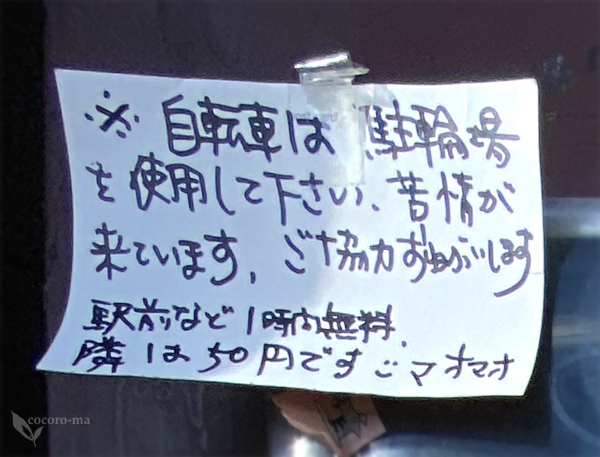 ※ 自転車は 駐輪場
を使用して下さい、苦情が
来ています、ご協力お願いします
駅前など1時間無料、
隣は50円です
cocoro-ma